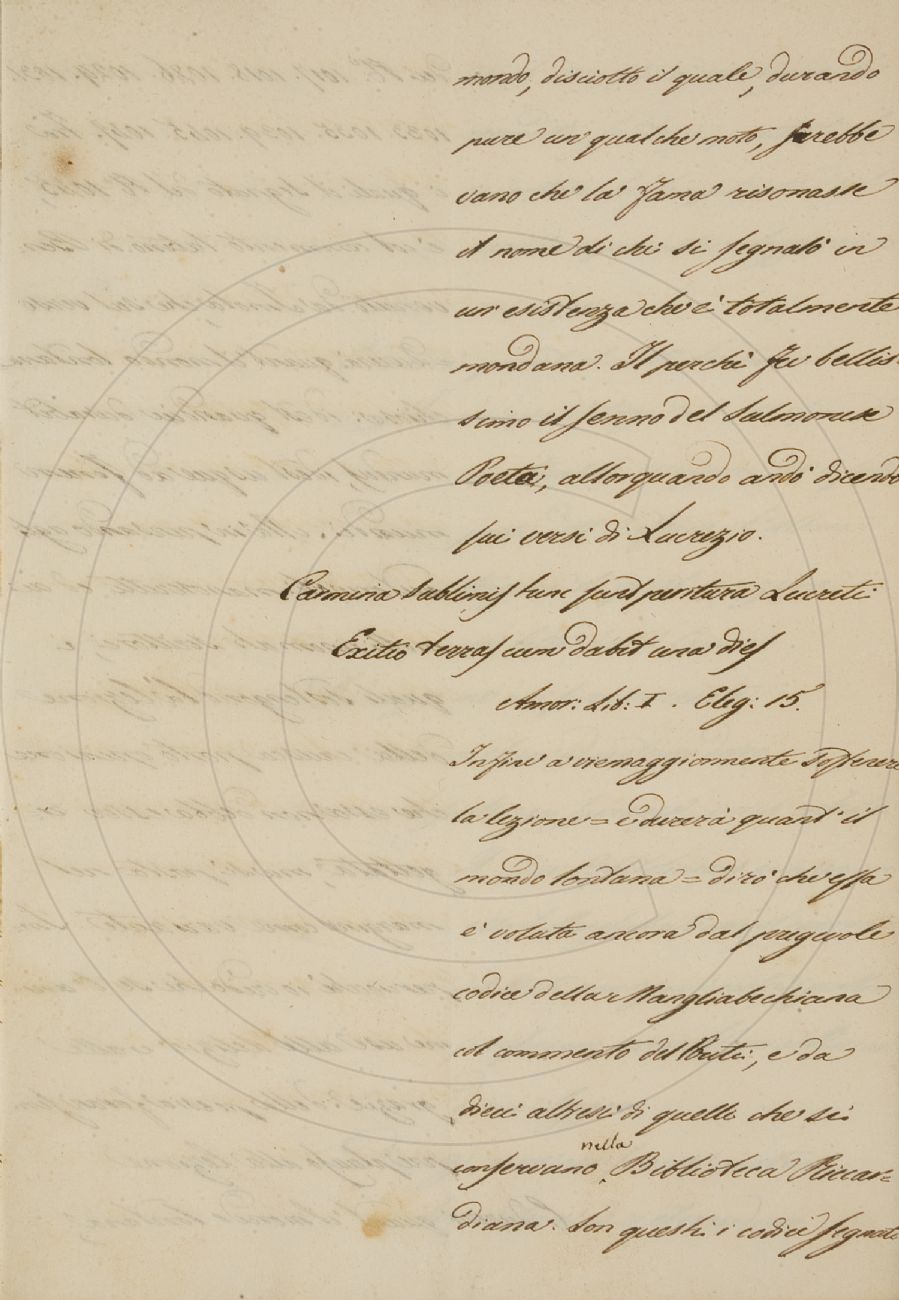 mondo, disciolto il quale, durando
pure un qualche moto, sarebbe
vano che la Fama risonasse
il nome di chi si segnalò in
un'esistenza che è totalmente
mondana. Il perchè fu bellis-
simo il senno del Sulmonese
Poeta, allorquando andò dicendo
sui versi di Lucrezio.
Carmina sublimis tunc sunt peritura Lucreti
Exitio terras cum dabit una dies
Amor: Lib: I. Eleg: 15.
Infine a viemaggiormente sostenere
la lezione = e durerà quant' il
mondo lontana = dirò che essa
è voluta ancora dal pregevole
codice della Mangliabechiana
col commento del Buti, e da
dieci altresì di quelli che si
conservano nella Biblioteca Riccar=
diana. Son questi i codici segnati